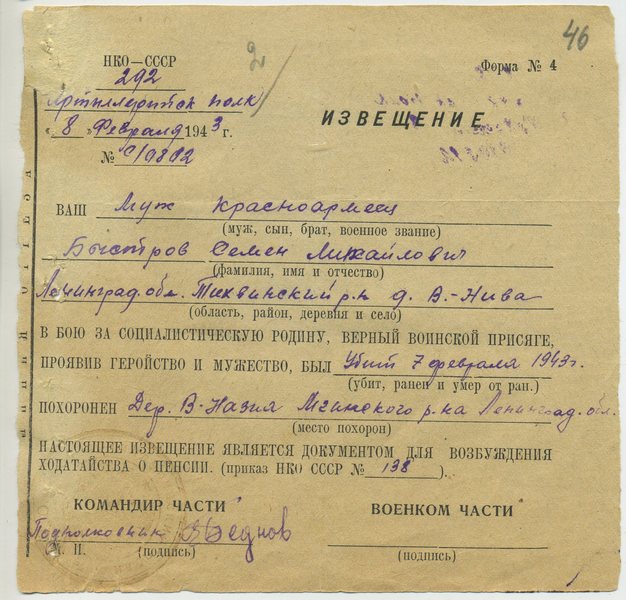 46
2
НКО—СССР
Форма № 4
292
Артиллерийск полк
„8" Февраля 1943 г.
ИЗВЕЩЕНИЕ
№ 0/9802
ВАШ Муж красноармеец
(муж, сын, брат, военное звание)
Быстров Семен Михайлович
(фамилия, имя и отчество)
Ленинград. обл. Тихвинский р-н д. В.-Нива
(область, район, деревня и село)
В БОЮ ЗА СОЦИАЛИСТИЧЕСКУЮ РОДИНУ, ВЕРНЫЙ ВОИНСКОЙ ПРИСЯГЕ,
ПРОЯВИВ ГЕРОЙСТВО И МУЖЕСТВО, БЫЛ Убит 7 февраля 1943 г.
(убит, ранен и умер от ран.)
ПОХОРОНЕН Дер. В-Назия Мгинского р-на Ленинград. обл.
(место похорон)
НАСТОЯЩЕЕ ИЗВЕЩЕНИЕ ЯВЛЯЕТСЯ ДОКУМЕНТОМ ДЛЯ ВОЗБУЖДЕНИЯ
ХОДАТАЙСТВА О ПЕНСИИ. (приказ НКО СССР № 138).
КОМАНДИР ЧАСТИ
ВОЕНКОМ ЧАСТИ
Подполковник
М. П. (подпись)
(подпись)